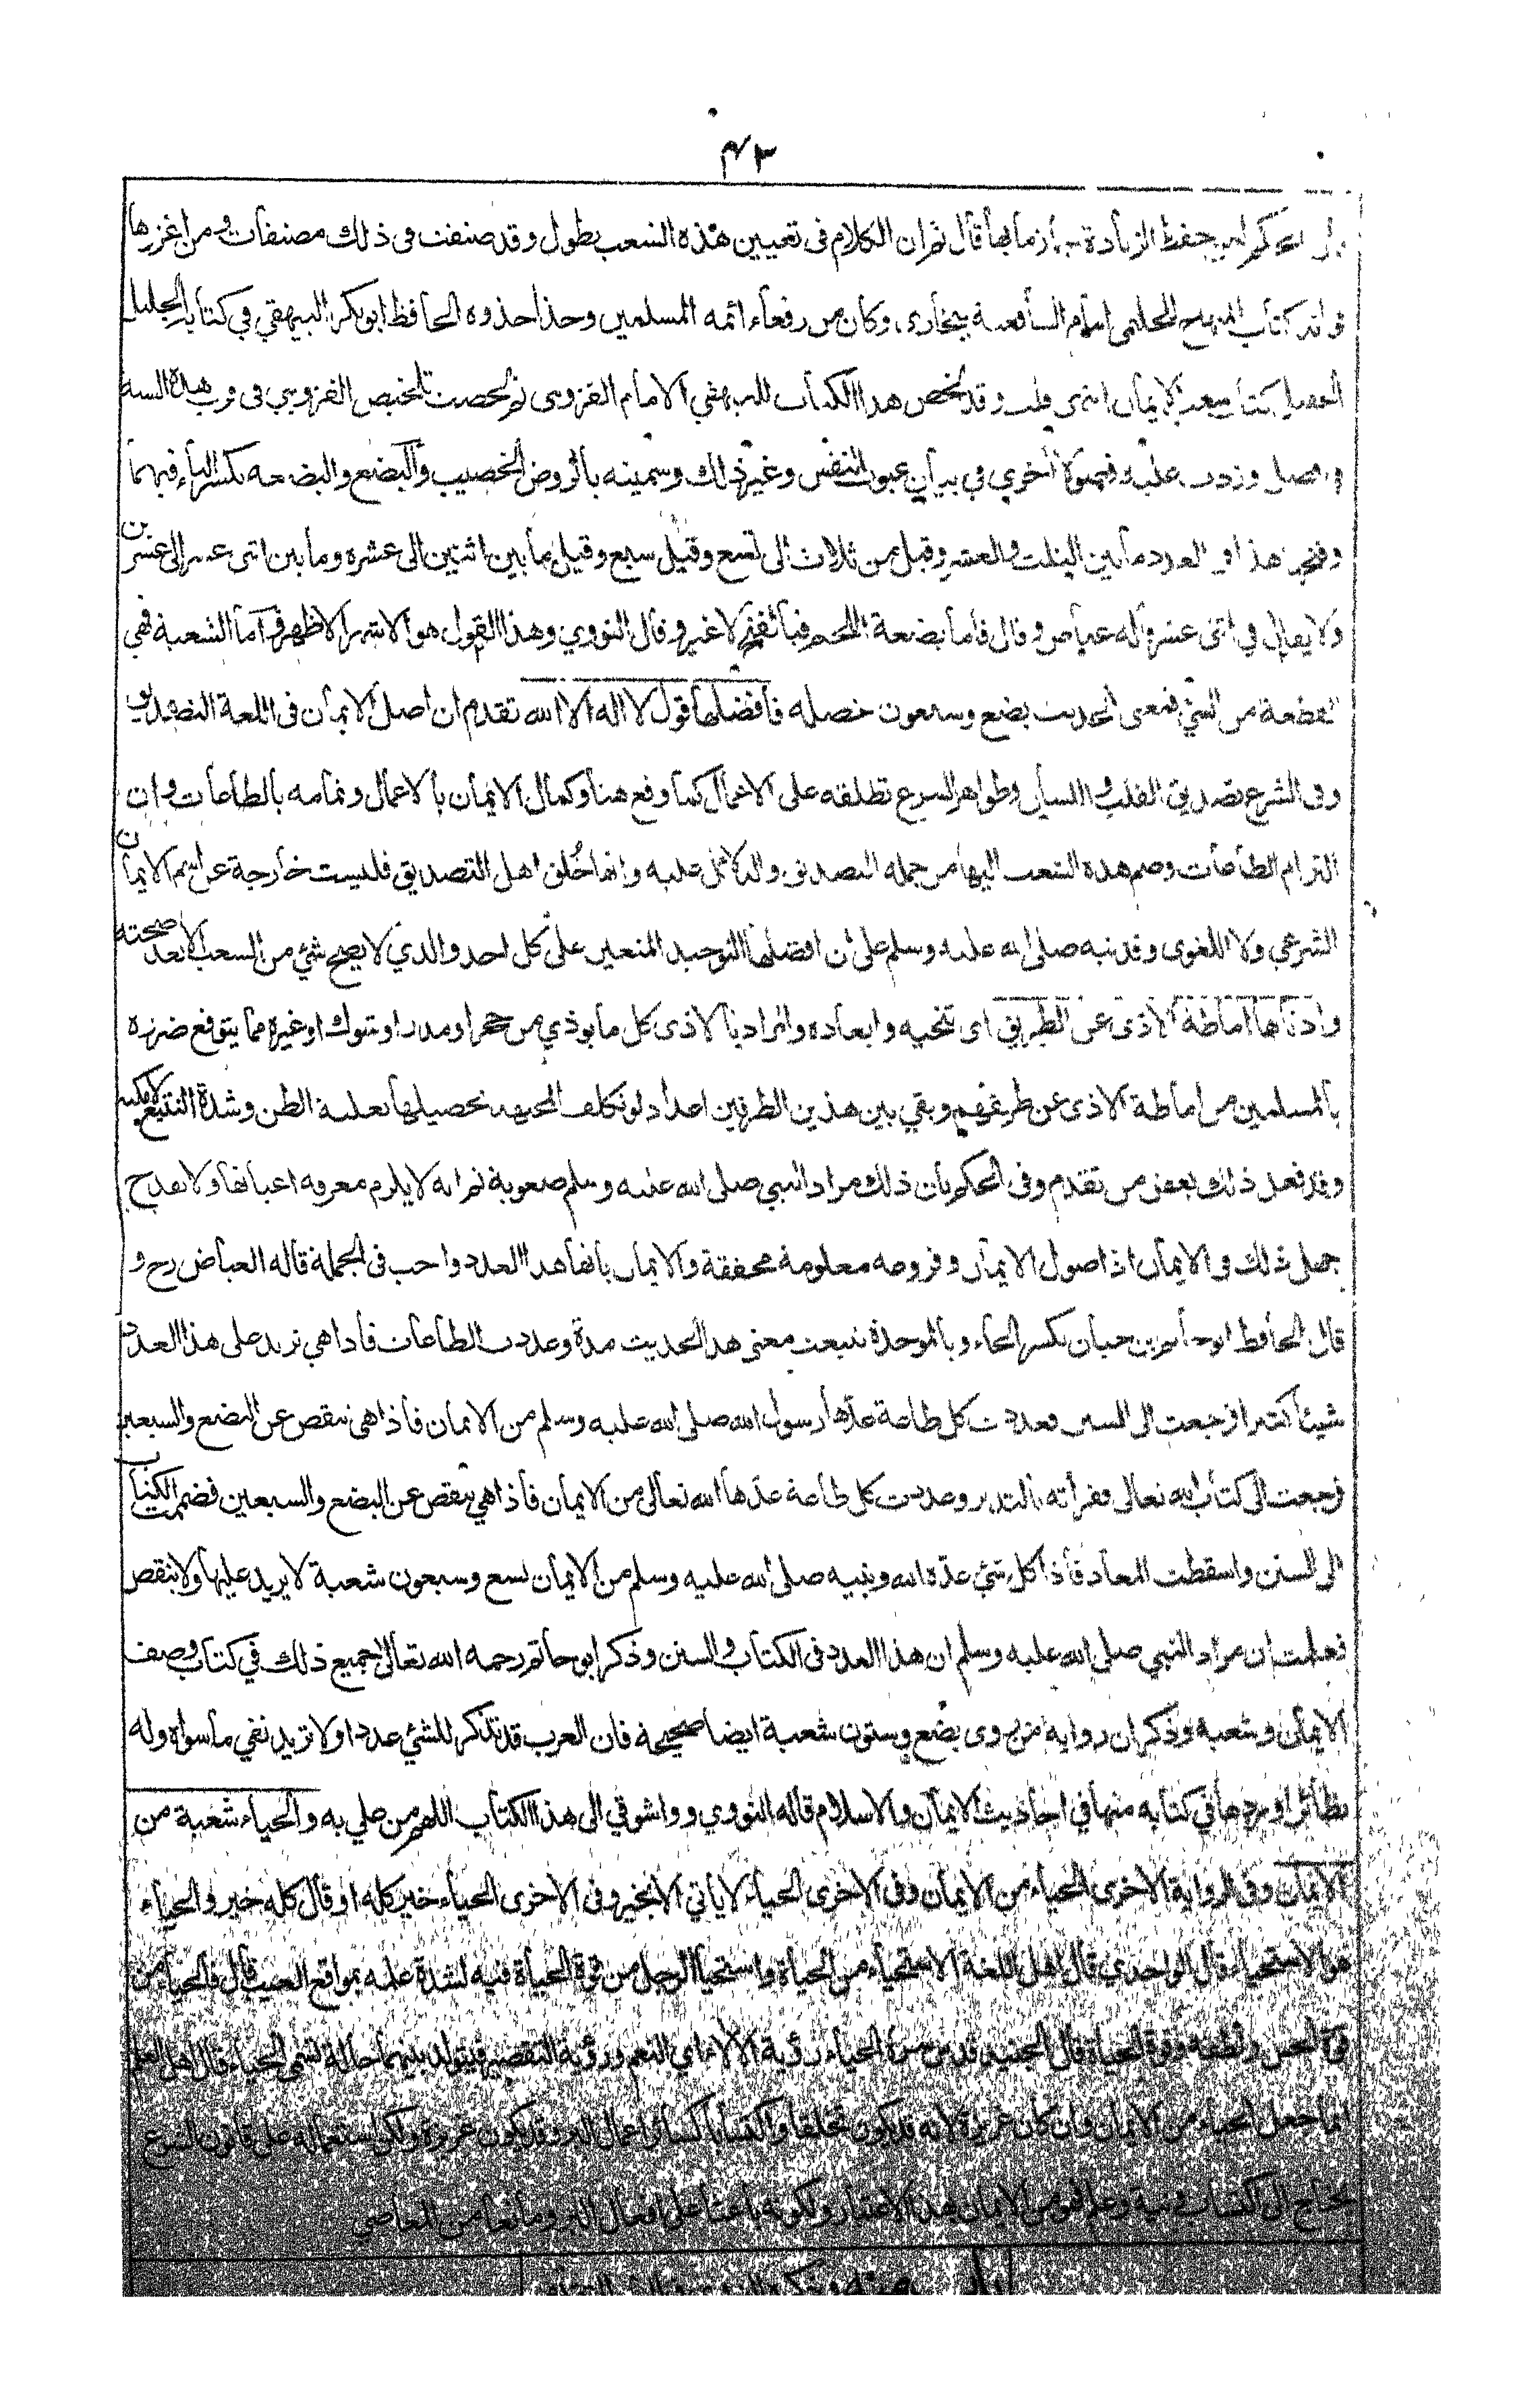 ٤٣
حفظ الزيادة جازما بها قال ثم ان الكلام فى تعيين هذه الشعب يطول وقد صنفت فى ذلك مصنفات ومن اغزرها
فوائد كتاب المنهاج للحليمى امام الشافعية ببخارى وكان من رفعاء ائمه المسلمين وحذا حذوه الحافظ ابو بكر البيهقي في كتابه الجليل
الحفيل كتاب شعب الايمان انتهى قلت وقد لخص هذا الكتاب للبيهقي الامام القزوينى ثم لخصت تلخيص القزويني فى هذه السنة
وزدت عليه اخري في بيان عيوب النفس وغير ذلك وسميته بالروض الخصيب والبضع والبضعه بكسر الباء فيهما
هذا فى العدد ما بين الثلث والعشر وقيل من ثلاث الى تسع وقيل سبع وقيل ما بين اثنين الى عشره وما بين اثنى عشر الى عشرين
ولا يقال في اثنى عشر قاله عياض وقال فاما بضعة اللحم فبالفتح لا غير وقال النووي وهذا القول هو الاشهر الاظهر واما الشعبة فهي
القطعة من الشئ فمعنى الحديث بضع وسبعون خصله فافضلها قول لا اله الا الله تقدم ان اصل الايمان فى اللغة التصديق
وفى الشرع تصديق القلب واللسان وظواهر الشرع تطلقه على الاعمال كما وقع هنا وكمال الايمان بالاعمال وتمامه بالطاعات وان
التزام الطاعات وضم هذه الشعب اليها من جمله التصديق والدلائل عليه وانها خُلق اهل التصديق فليست خارجة عن اسم الايمان
الشرعي ولا اللغوى وقد نبه صلى الله عليه وسلم على ان افضلها التوحيد المتعين على كل احد والذي لا يصح شئ من الشعب الا بعد صحته
وادناها اماطة الاذى عن الطريق اى تنحيه وابعاده والمراد بالاذى كل ما يوذي من حجر او مدر او شوك او غيره مما يتوقع ضرره
بالمسلمين من اماطة الاذى عن طريقهم وبقي بين هذين الطرفين اعداد لو تكلف المجتهد تحصيلها بغلبة الظن وشدة التتبع لامكنه
وقد فعل ذلك بعض من تقدم وفى الحكم بان ذلك مراد النبي صلى الله عليه وسلم صعوبة ثم انه لا يلزم معرفه اعيانها ولا يقدح
جهل ذلك فى الايمان اذ اصول الايمان وفروعه معلومة محققة والايمان بانها هذا العدد واجب فى الجملة قاله العياض رح و
قال الحافظ ابو حاتم بن حبان بكسر الحاء وبالموحدة تتبعت معنى هذا الحديث مدة وعددت الطاعات فاذا هي تزيد على هذا العدد
شيئا كثيرا فرجعت الى السنن فعددت كل طاعة عدّها رسول الله صلى الله عليه وسلم من الايمان فاذا هى تنقص عن البضع والسبعين
فرجعت الى كتاب الله تعالى فقراته بالتدبر وعددت كل طاعة عدّها الله تعالى من الايمان فاذا هي تنقص عن البضع والسبعين فضممت الكتاب
الى السنن واسقطت المعاد فاذا كل شئ عدّه الله ونبيه صلى الله عليه وسلم من الايمان تسع وسبعون شعبة لا يزيد عليها ولا ينقص
فعلمت ان مراد النبي صلى الله عليه وسلم ان هذا العدد فى الكتاب والسنن وذكر ابو حاتم رحمه الله تعالى جميع ذلك في كتاب وصف
الايمان وشعبه وذكر ان رواية من روى بضع وستون شعبة ايضا صحيحة فان العرب قد تذكر للشئ عددا ولا تريد نفي ما سواه وله
نظائر اوردها في كتابه منها في احاديث الايمان والاسلام قاله النووي وواشوقي الى هذا الكتاب اللهم من علي به والحياء شعبة من
الايمان وفى الرواية الاخرى الحياء من الايمان وفى الاخرى الحياء لا ياتي الا بخير وفى الاخرى الحياء خير كله او قال كله خير والحياء
هو الاستحياء قال الواحدي قال اهل اللغة الاستحياء من الحياة واستحيا الرجل من قوة الحياة فيه لشدة علمه بمواقع العيب قال فالحياء من
قوة الحس ولطفه وقوة الحياة قال الجنيد قدس سره الحياء رؤية الآلاء اي النعم ورؤية التقصير فيتولد بينهما حالة تسمى الحياء قال اهل العلم
انما جعل الحياء من الايمان وان كان غريزة لانه قد يكون تخلقا واكتسابا كسائر اعمال البر وقد يكون غريزة ولكن استعماله على قانون الشرع
يحتاج الى اكتساب ونية وعلم فهو من الايمان بهذا الاعتبار ولكونه باعثا على افعال البر ومانعا من المعاصي